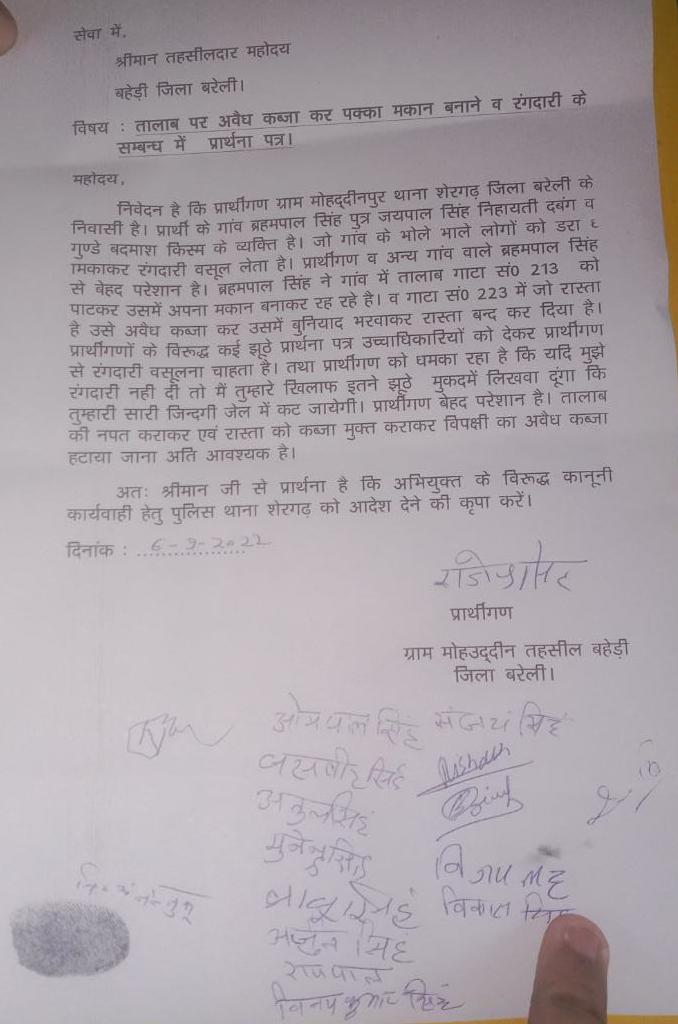 सेवा में,
श्रीमान तहसीलदार महोदय
बहेड़ी जिला बरेली।
विषय : तालाब पर अवैध कब्जा कर पक्का मकान बनाने व रंगदारी के
सम्बन्ध में प्रार्थना पत्र।
महोदय,
निवेदन है कि प्रार्थीगण ग्राम मोहद्दीनपुर थाना शेरगढ़ जिला बरेली के
निवासी है। प्रार्थी के गांव ब्रहमपाल सिंह पुत्र जयपाल सिंह निहायती दबंग व
गुण्डे बदमाश किस्म के व्यक्ति है। जो गांव के भोले भाले लोगों को डरा ध
मकाकर रंगदारी वसूल लेता है। प्रार्थीगण व अन्य गांव वाले ब्रहमपाल सिंह
से बेहद परेशान है। ब्रहमपाल सिंह ने गांव में तालाब गाटा सं0 213 को
पाटकर उसमें अपना मकान बनाकर रह रहे है। व गाटा सं0 223 में जो रास्ता
है उसे अवैध कब्जा कर उसमें बुनियाद भरवाकर रास्ता बन्द कर दिया है।
प्रार्थीगणों के विरूद्ध कई झूठे प्रार्थना पत्र उच्चाधिकारियों को देकर प्रार्थीगण
से रंगदारी वसूलना चाहता है। तथा प्रार्थीगण को धमका रहा है कि यदि मुझे
रंगदारी नही दी तो मैं तुम्हारे खिलाफ इतने झूठे मुकदमें लिखवा दूंगा कि
तुम्हारी सारी जिन्दगी जेल में कट जायेगी। प्रार्थीगण बेहद परेशान है। तालाब
की नपत कराकर एवं रास्ता को कब्जा मुक्त कराकर विपक्षी का अवैध कब्जा
हटाया जाना अति आवश्यक है।
अतः श्रीमान जी से प्रार्थना है कि अभियुक्त के विरूद्ध कानूनी
कार्यवाही हेतु पुलिस थाना शेरगढ़ को आदेश देने की कृपा करें।
दिनांक : 6-9-2022
प्रार्थीगण
ग्राम मोहउद्दीन तहसील बहेड़ी
जिला बरेली।
ओमपाल सिंह संजय सिंह
जसवीर सिंह
अतुल सिंह
मुनेन्द्र सिंह
बाबू सिंह
विकास सिंह
अर्जुन सिंह
रामपाल
विनय कुमार सिंह